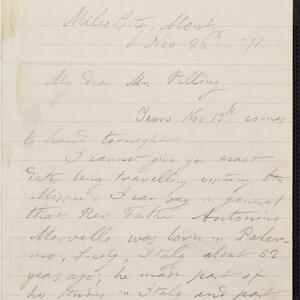 Miles City, Mont,
Nov 26th - 91.
My dear Mr. Pilling
Yours Nov. 13th comes
to hand tonight
I cannot give you exact
dates being travelling visiting the
Mission. I can say in general
that Rev. Father Antonino
Morvillo was born in Paler-
mo, Sicily, Italy about 52
years ago; he made part of
his studies in Italy and part